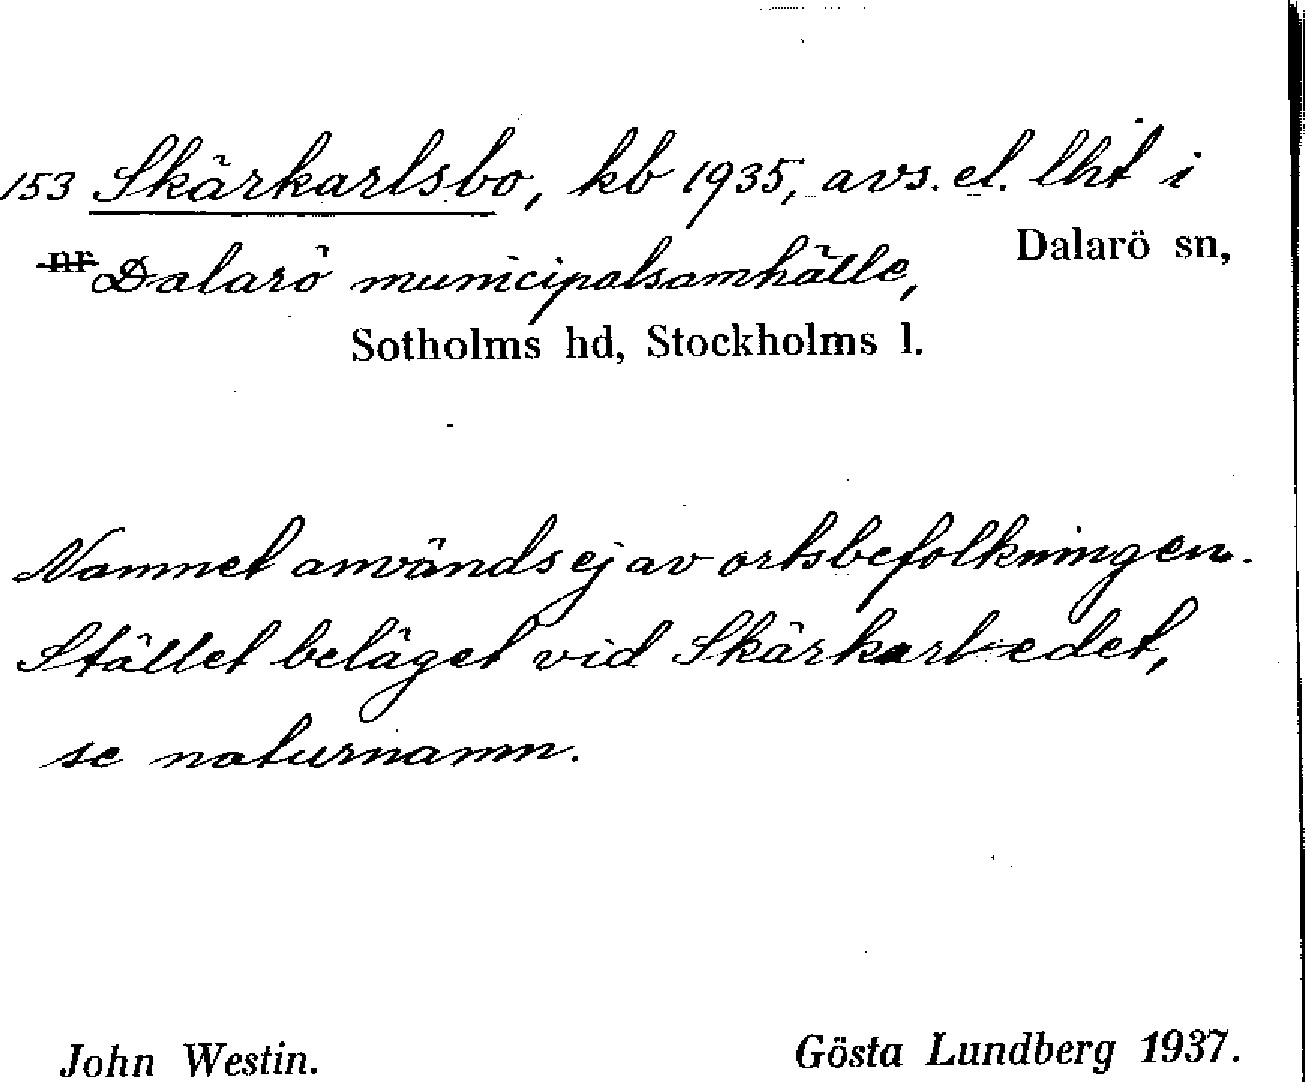 153 Skärkarlsbo, kb 1935, avs. el. lht i
nr Dalarö municipalsamhälle, Dalarö sn,
Sotholms hd, Stockholms l.
Namnet används ej av ortsbefolkningen.
Stället beläget vid
se naturnamn.
John Westin. Gösta Lundberg 1937.